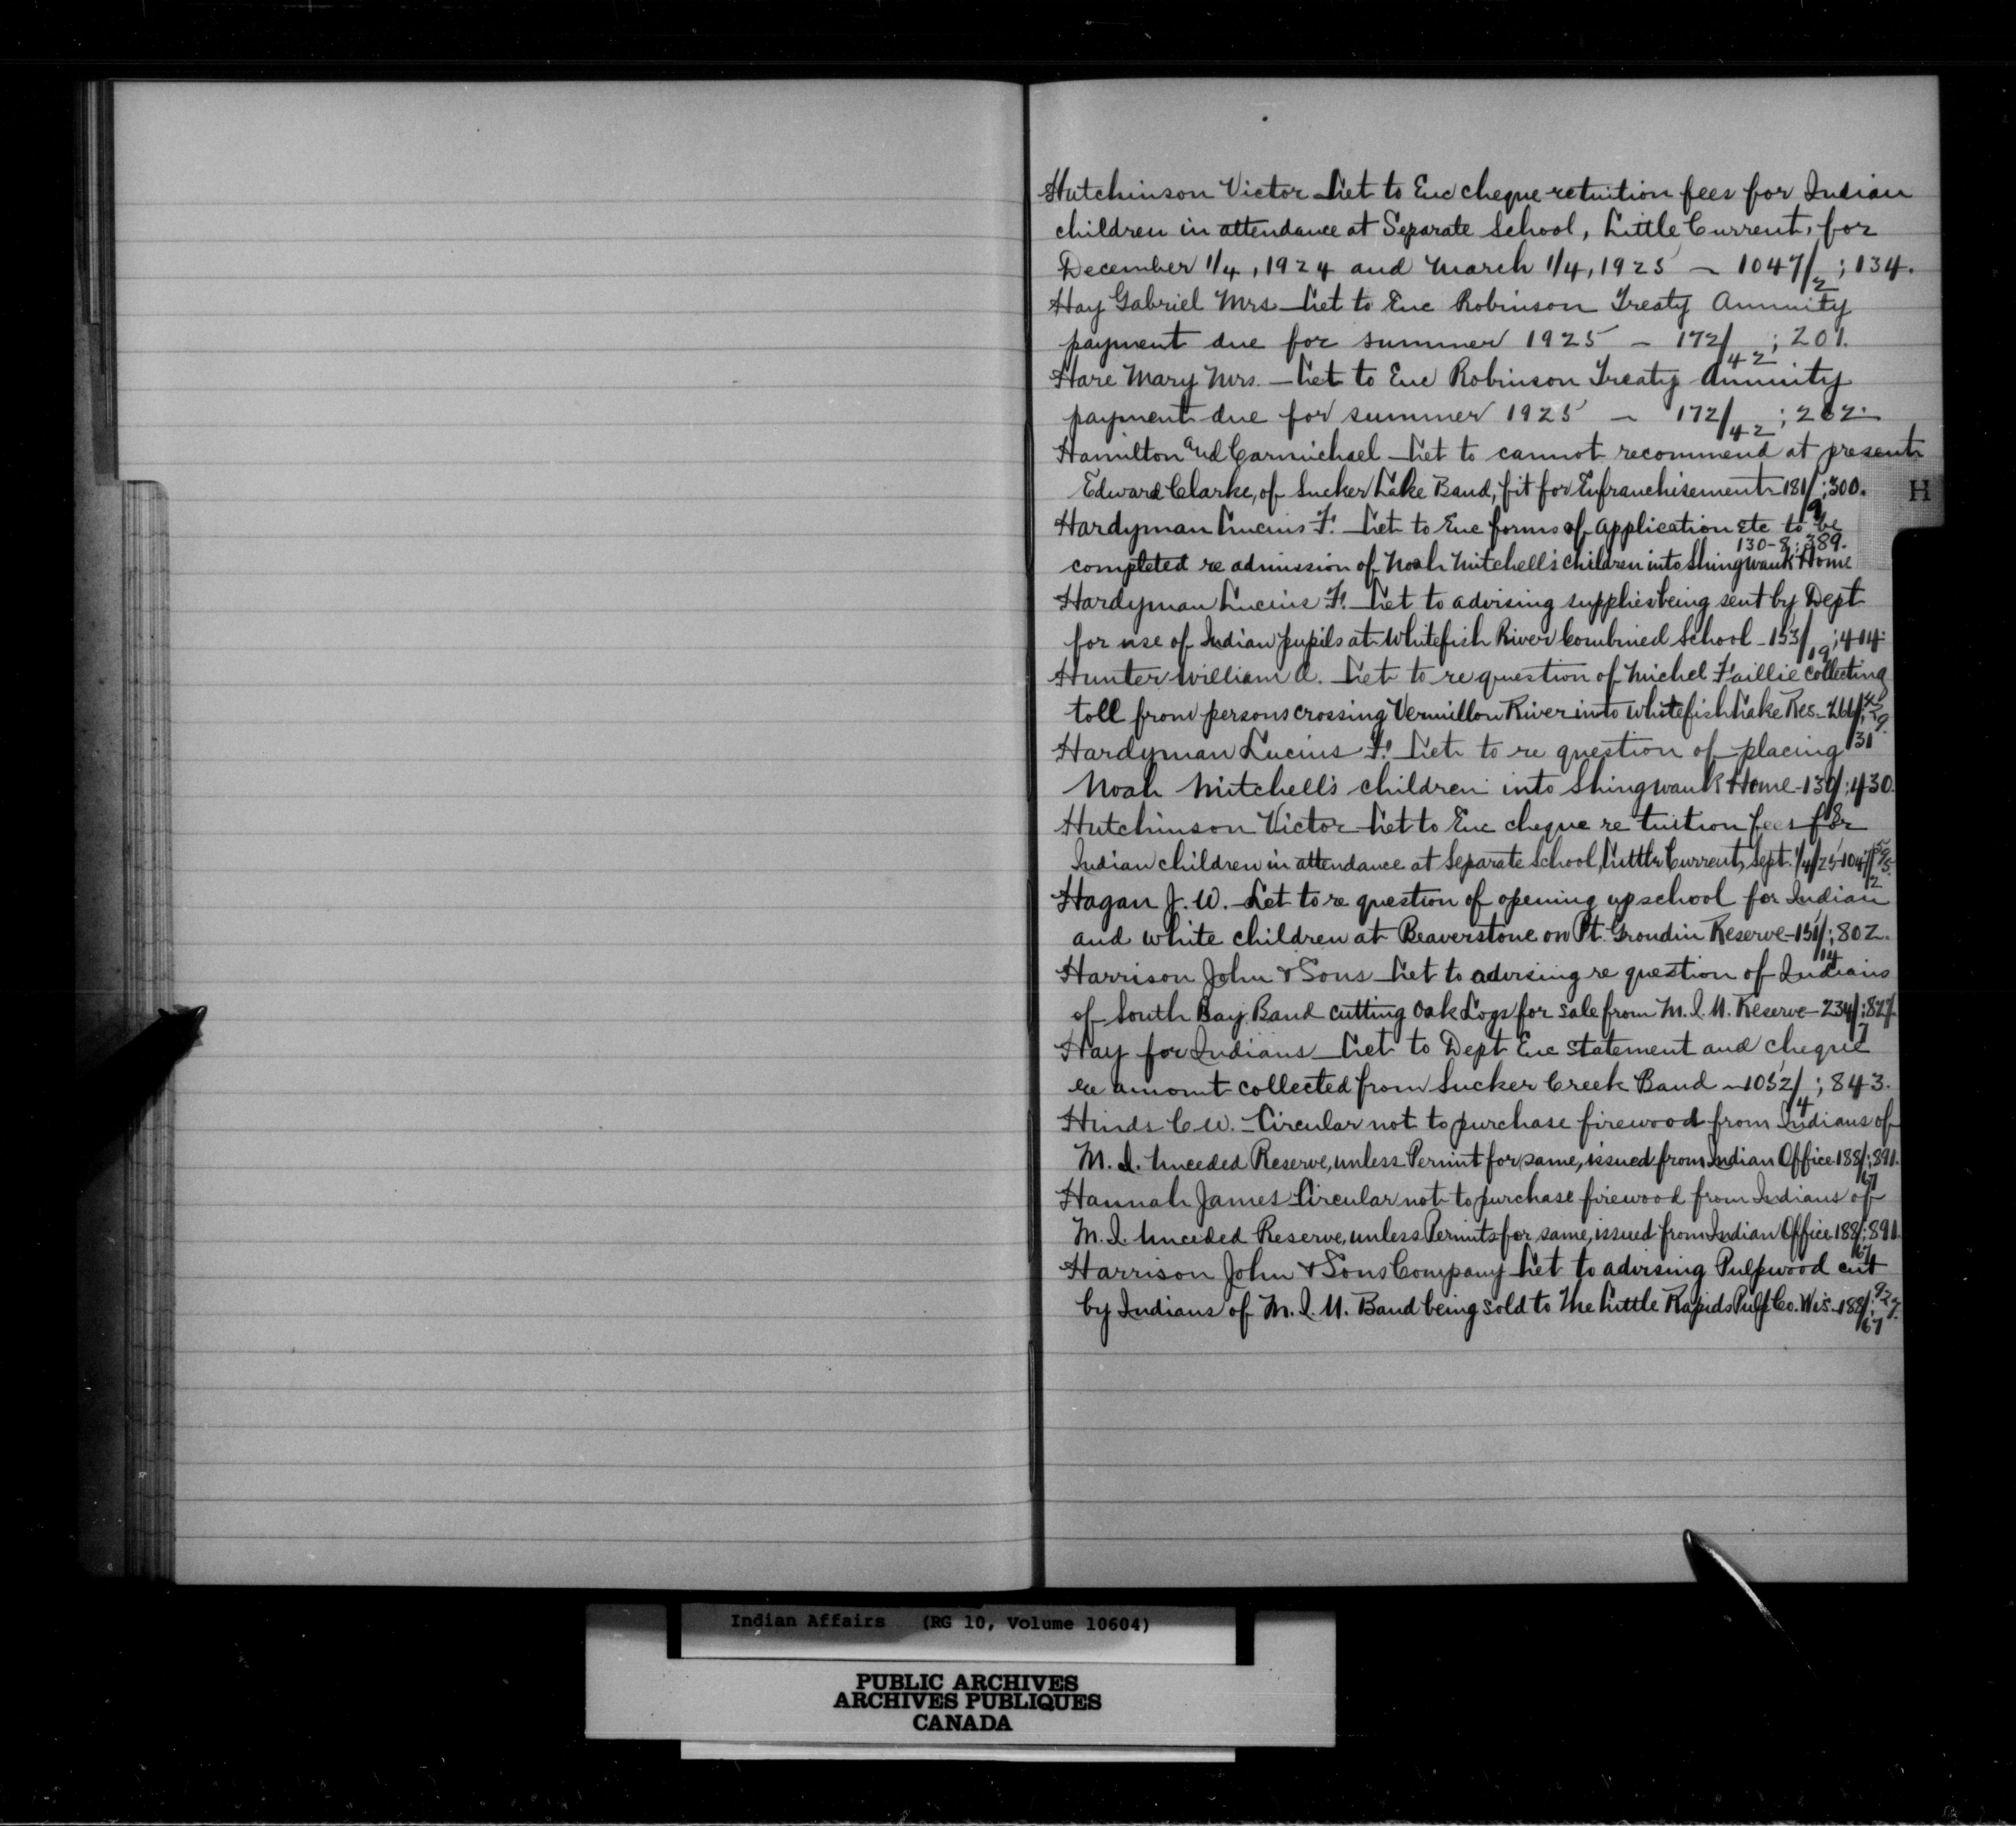 Hutchinson Victor Let to Enc cheque re tuition fees for Indian
children in attendance at Separate School, Little Current, for
December 1/4, 1924 and March 1/4, 1925 - 1047/2 ; 134.
Hay Gabriel Mrs Let to Enc Robinson Treaty Annuity
payment due for summer 1925 - 172/42 ; 201.
Hare Mary Mrs. - Let to Enc Robinson Treaty Annuity
payment due for summer 1925 - 172/42 ; 202.
Hamilton and Carmichael Let to cannot recommend at present
Edward Clarke, of Sucker Lake Band, fit for Enfranchisement - 181/9 ; 300.
Hardyman Lucius F. Let to Enc forms of application etc to be
130-8 ; 389.
completed re admission of Noah Mitchell's children into Shingwauk Home
Hardyman Lucius F. Let to advising supplies being sent by Dept
for use of Indian pupils at Whitefish River Combined School - 153/19 ; 414.
Hunter William A. Let to re question of Michel Faillie collecting
toll from persons crossing Vermillon River into Whitefish Lake Res -
Hardyman Lucius F. Let to re question of placing
Noah Mitchell's children into Shingwauk Home - 130/8 ; 430.
Hutchinson Victor Let to Enc cheque re tuition fees for
Indian children in attendance at Separate School, Little Current, Sept. 1/4/25 - 1047/2
Hagan J. W. Let to re question of opening up school for Indian
and white children at Beaverstone on Pt. Grondin Reserve - 151/14 ; 802.
Harrison John & Sons Let to advising re question of Indians
of South Bay Band cutting Oak Logs for sale from M. I. U. Reserve - 234/7 ; 827
Hay for Indians Let to Dept Enc statement and cheque
re amount collected from Sucker Creek Band - 1052/4 ; 843.
Hinds C W. - Circular not to purchase firewood from Indians of
M. I. Unceded Reserve, unless Permit for same, issued from Indian Office - 188/67 ; 891.
Hannah James Circular not to purchase firewood from Indians of
M. I. Unceded Reserve, unless Permits for same, issued from Indian Office - 188/67 ; 891.
Harrison John & Sons Company Let to advising Pulpwood cut
by Indians of M. I. U. Band being sold to The Little Rapids Pulp Co. Wis - 188/67 ; 927.
H
Indian Affairs (RG 10, Volume 10604)
PUBLIC ARCHIVES
ARCHIVES PUBLIQUES
CANADA